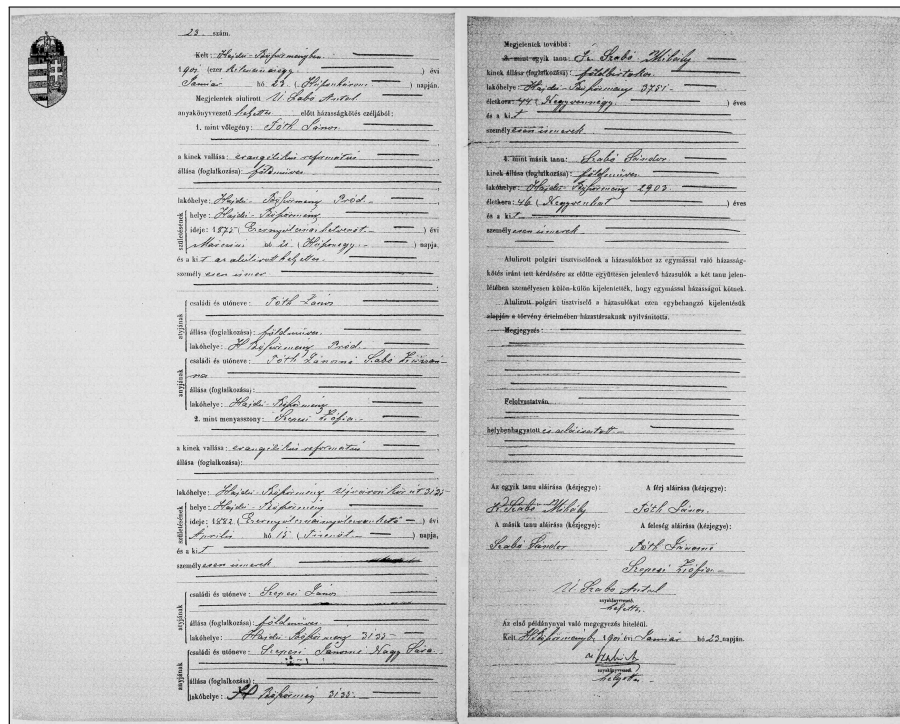 23. szám.
Kelt: Hajdú-Böszörményben
190 (ezer kilencszáz) évi
Január hó 23. (Húszonhárom) napján.
Megjelentek alulirott V. Szabó Antal
anyakönyvvezető helyettes előtt házasságkötés czéljából:
1. mint vőlegény: Tóth János
a kinek vallása: evangélikus református
állása (foglalkozása): földműves
lakóhelye: Hajdú-Böszörmény Pród.
születésének
helye: Hajdú-Böszörmény
ideje: 1875 (Ezernyolczszázhetvenöt) évi
Márczius hó (Húszonegy) napja,
és a kit az alulirott helyettes
személyesen ismer
atyjának
családi és utóneve: Tóth János
állása (foglalkozása): földműves
lakóhelye: H. Böszörmény Pród.
anyjának
családi és utóneve: Tóth Jánosné Szabó Zsuzsán-
na
állása (foglalkozása):
lakóhelye: Hajdú-Böszörmény
2. mint menyasszony: Szepesi Zsófia
a kinek vallása: evangélikus református
állása (foglalkozása):
lakóhelye: Hajdú-Böszörmény Újvároskör út 3135
születésének
helye: Hajdú-Böszörmény
ideje: 1882 (Ezernyolczszáznyolczvankettő) évi
Április hó 15. (Tizenöt) napja,
és a kit
személyesen ismerek
atyjának
családi és utóneve: Szepesi János
állása (foglalkozása): földműves
lakóhelye: Hajdú-Böszörmény 3135
anyjának
családi és utóneve: Szepesi Jánosné Nagy Sára
állása (foglalkozása):
lakóhelye: H Böszörmény 3135.
Megjelentek továbbá:
3. mint egyik tanu: Szabó Mihály
kinek állása (foglalkozása): földbirtokos
lakóhelye: Hajdú-Böszörmény 3751
életkora: 44 (Negyvennégy) éves
és a kit
személyesen ismerek
4. mint másik tanu: Szabó Sándor
kinek állása (foglalkozása): földműves
lakóhelye: Hajdú-Böszörmény 2903
életkora: 46 (Negyvenhat) éves
és a kit
személyesen ismerek
Alulirott polgári tisztviselőnek a házasulókhoz az egymással való házasság-
kötés iránt tett kérdésére az előtte együttesen jelenlevő házasulók a két tanu jelen-
létében személyesen külön-külön kijelentették, hogy egymással házasságot kötnek.
Alulirott polgári tisztviselő a házasulókat ezen egybehangzó kijelentésük
alapján a törvény értelmében házastársaknak nyilvánította.
Megjegyzés:
Felolvastatván,
helybenhagyatott és aláíratott
Az egyik tanu aláirása (kézjegye): A férj aláirása (kézjegye):
Szabó Mihály Tóth János
A másik tanu aláirása (kézjegye): A feleség aláirása (kézjegye):
Szabó Sándor Tóth Jánosné
Szepesi Zsófia
V. Szabó Antal
anyakönyvvezető
helyettes
Az első példánynyal való megegyezés hiteléül.
Kelt, H. Böszörményb. 190 év Január hó 23 napján.
anyakönyvvezető
helyettes